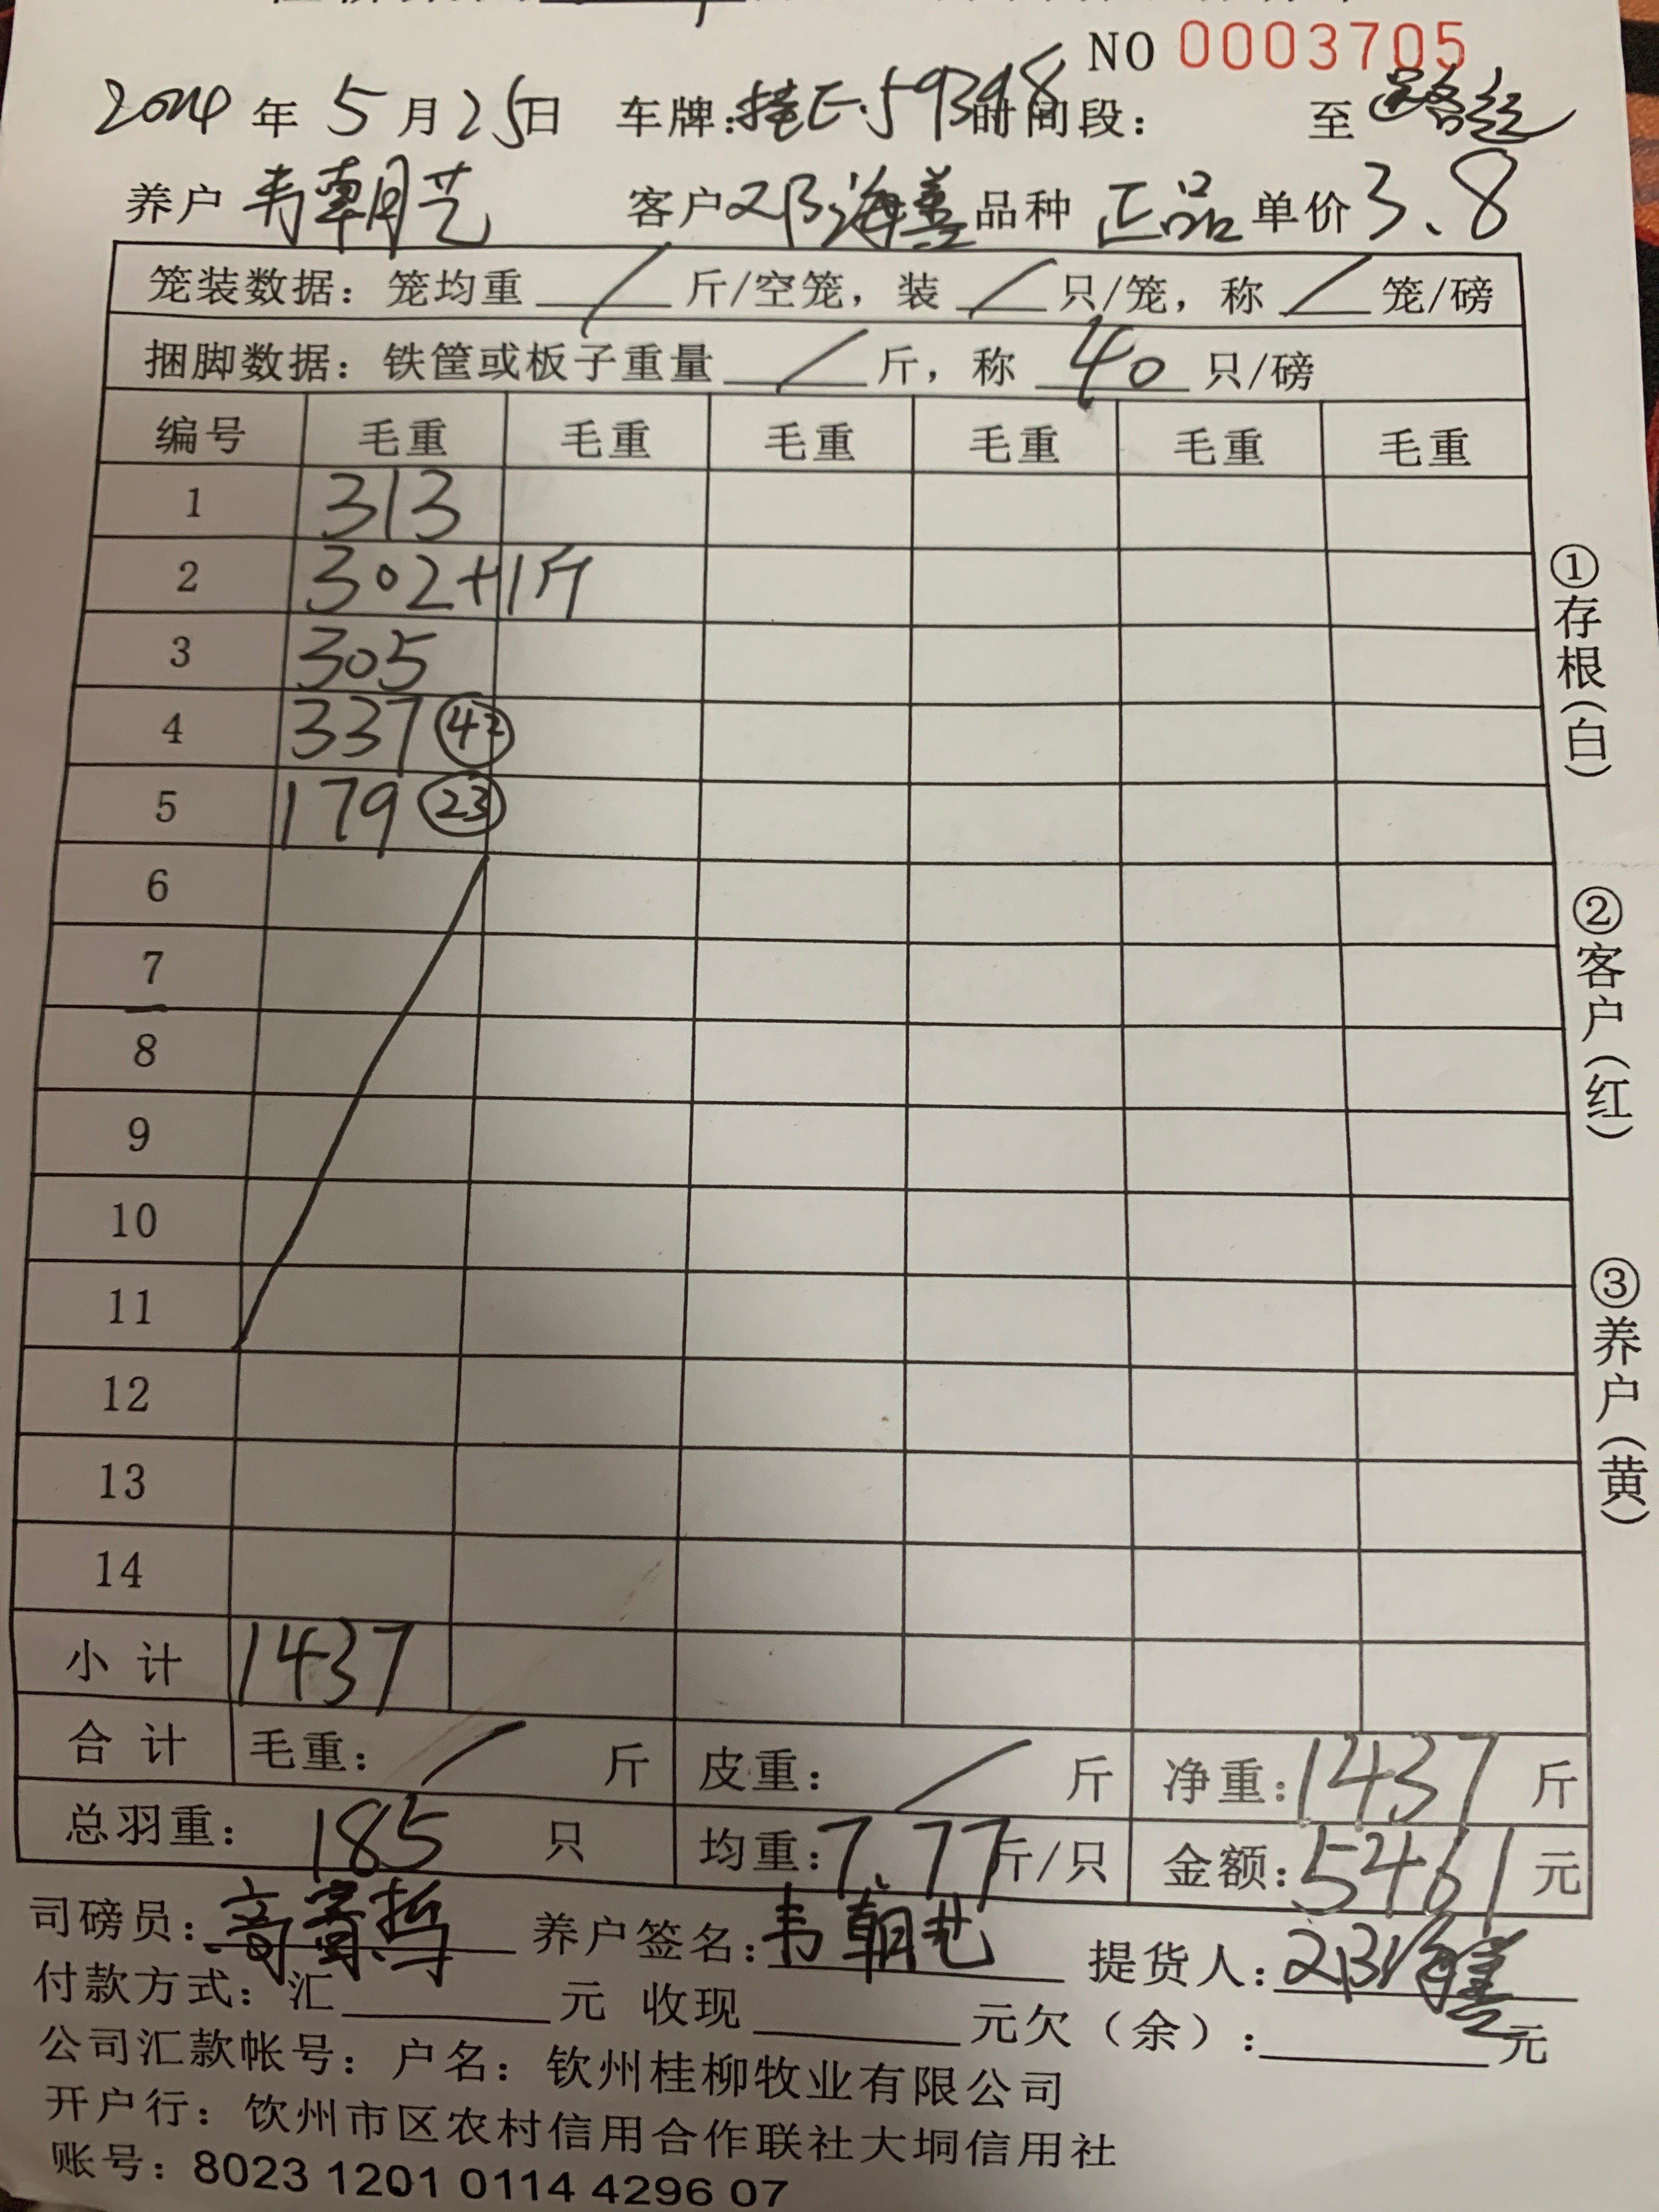 NO 0003705
2024 年 5 月 25 日 车牌: 桂E·59398 时间段: 至
养户 韦朝艺 客户 邓海善 品种 正品 单价 3.8
笼装数据: 笼均重 / 斤/空笼, 装 / 只/笼, 称 / 笼/磅
捆脚数据: 铁筐或板子重量 / 斤, 称 40 只/磅
编号 毛重 毛重 毛重 毛重 毛重 毛重
1 313
2 302+1斤
3 305
4 337 42
5 179 23
6
7
8
9
10
11
12
13
14
小 计 1437
合 计 毛重: / 斤 皮重: / 斤 净重: 1437 斤
总羽重: 185 只 均重: 7.77 斤/只 金额: 5461 元
司磅员: 养户签名: 韦朝艺 提货人: 邓海善
付款方式: 汇 元 收现 元欠(余): 元
公司汇款帐号: 户名: 钦州桂柳牧业有限公司
开户行: 钦州市区农村信用合作联社大垌信用社
账号: 8023 1201 0114 4296 07
①存根(白)
②客户(红)
③养户(黄)